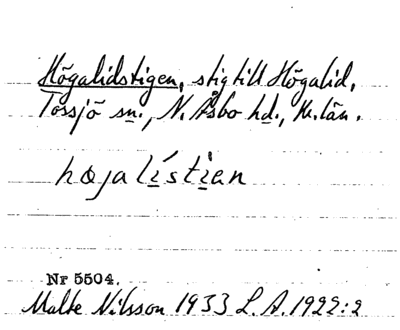 Högalidstigen, stig till Högalid,
Tossjö sn., N. Åsbo hd., Kr. län.
højalístien
Nr 5504.
Malte Nilsson 1933 L.A. 1922:2